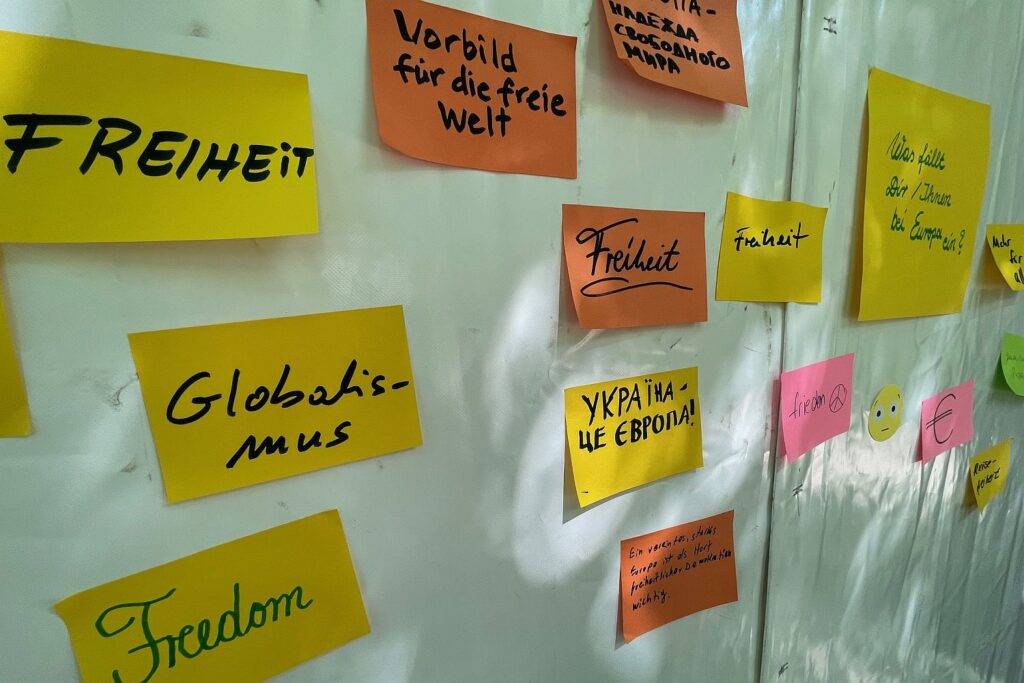 FREIHEIT
Vorbild
für die freie
Welt
НАДЕЖДА
СВОБОДНОГО
МИРА
Was fällt
Dir / Ihnen
bei Europa
ein?
Freiheit
Freiheit
Mehr
für
Globalis-
mus
УКРАЇНА -
ЦЕ ЄВРОПА!
frieden
€
Reise-
freiheit
Ein vereintes, starkes
Europa ist als Hort
freiheitlicher Demokratien
wichtig.
Freedom